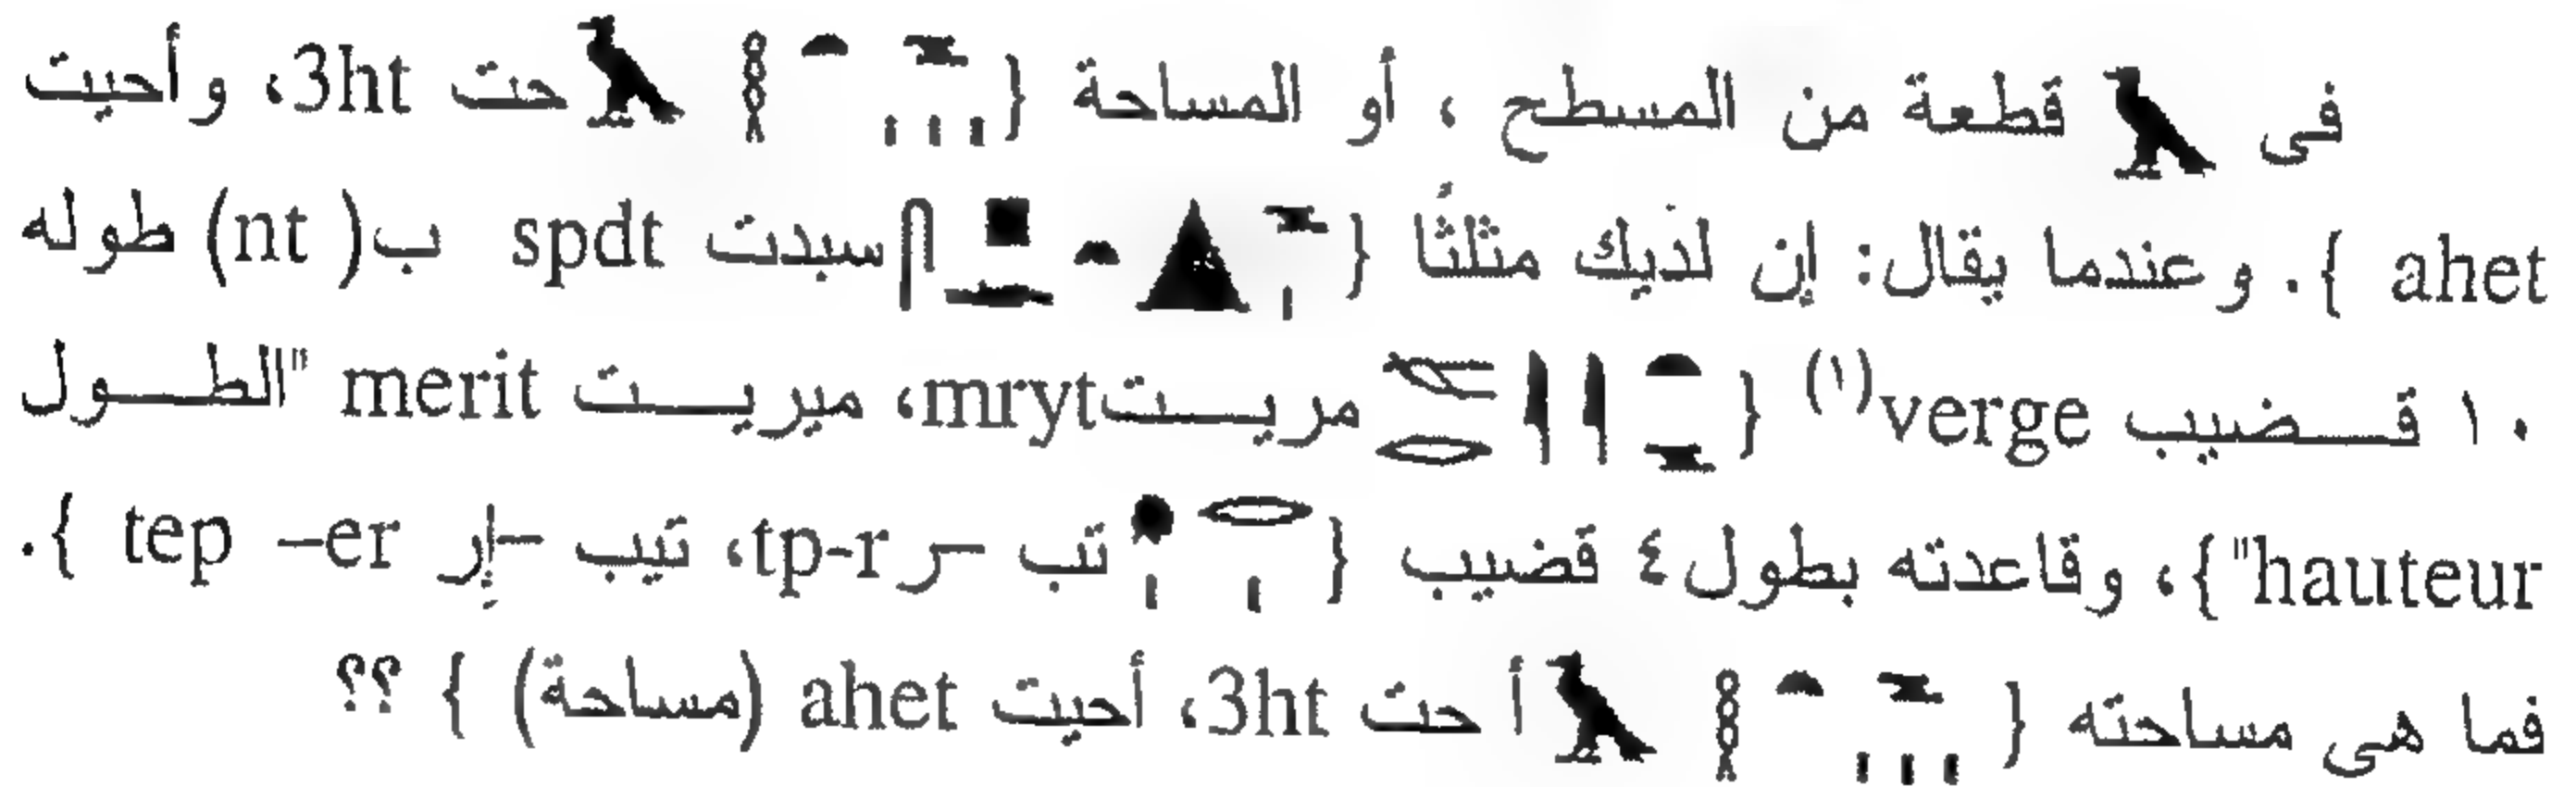 فى 𓄿 قطعة من المسطح ، أو المساحة { 𓄿𓎛𓏏𓈇𓏥 حت 3ht، وأحيت
ahet }. وعندما يقال: إن لديك مثلثًا { 𓋴𓊪𓂧𓏏𓇮𓈇𓏤 سبدت spdt ب( nt) طوله
١٠ قـضيب verge(١) { 𓌸𓂋𓇋𓇋𓏏𓈇 مريـت mryt، ميريـت merit "الطـول
hauteur"}، وقاعدته بطول٤ قضيب { 𓁶𓏤𓂋𓏤 تب –ر tp-r، تيب –إر tep –er }.
فما هى مساحته { 𓄿𓎛𓏏𓈇𓏥 أ حت 3ht، أحيت ahet (مساحة) } ؟؟